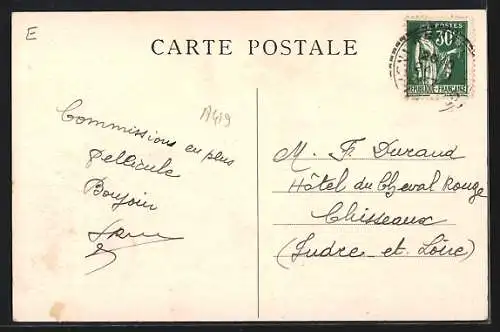 E
CARTE POSTALE
POSTES
30c
REPUBLIQUE-FRANÇAISE
Commissions en plus
pellicule
Bonjour
M. F. Durand
Hôtel du Cheval Rouge
Chisseaux
(Indre et Loire)